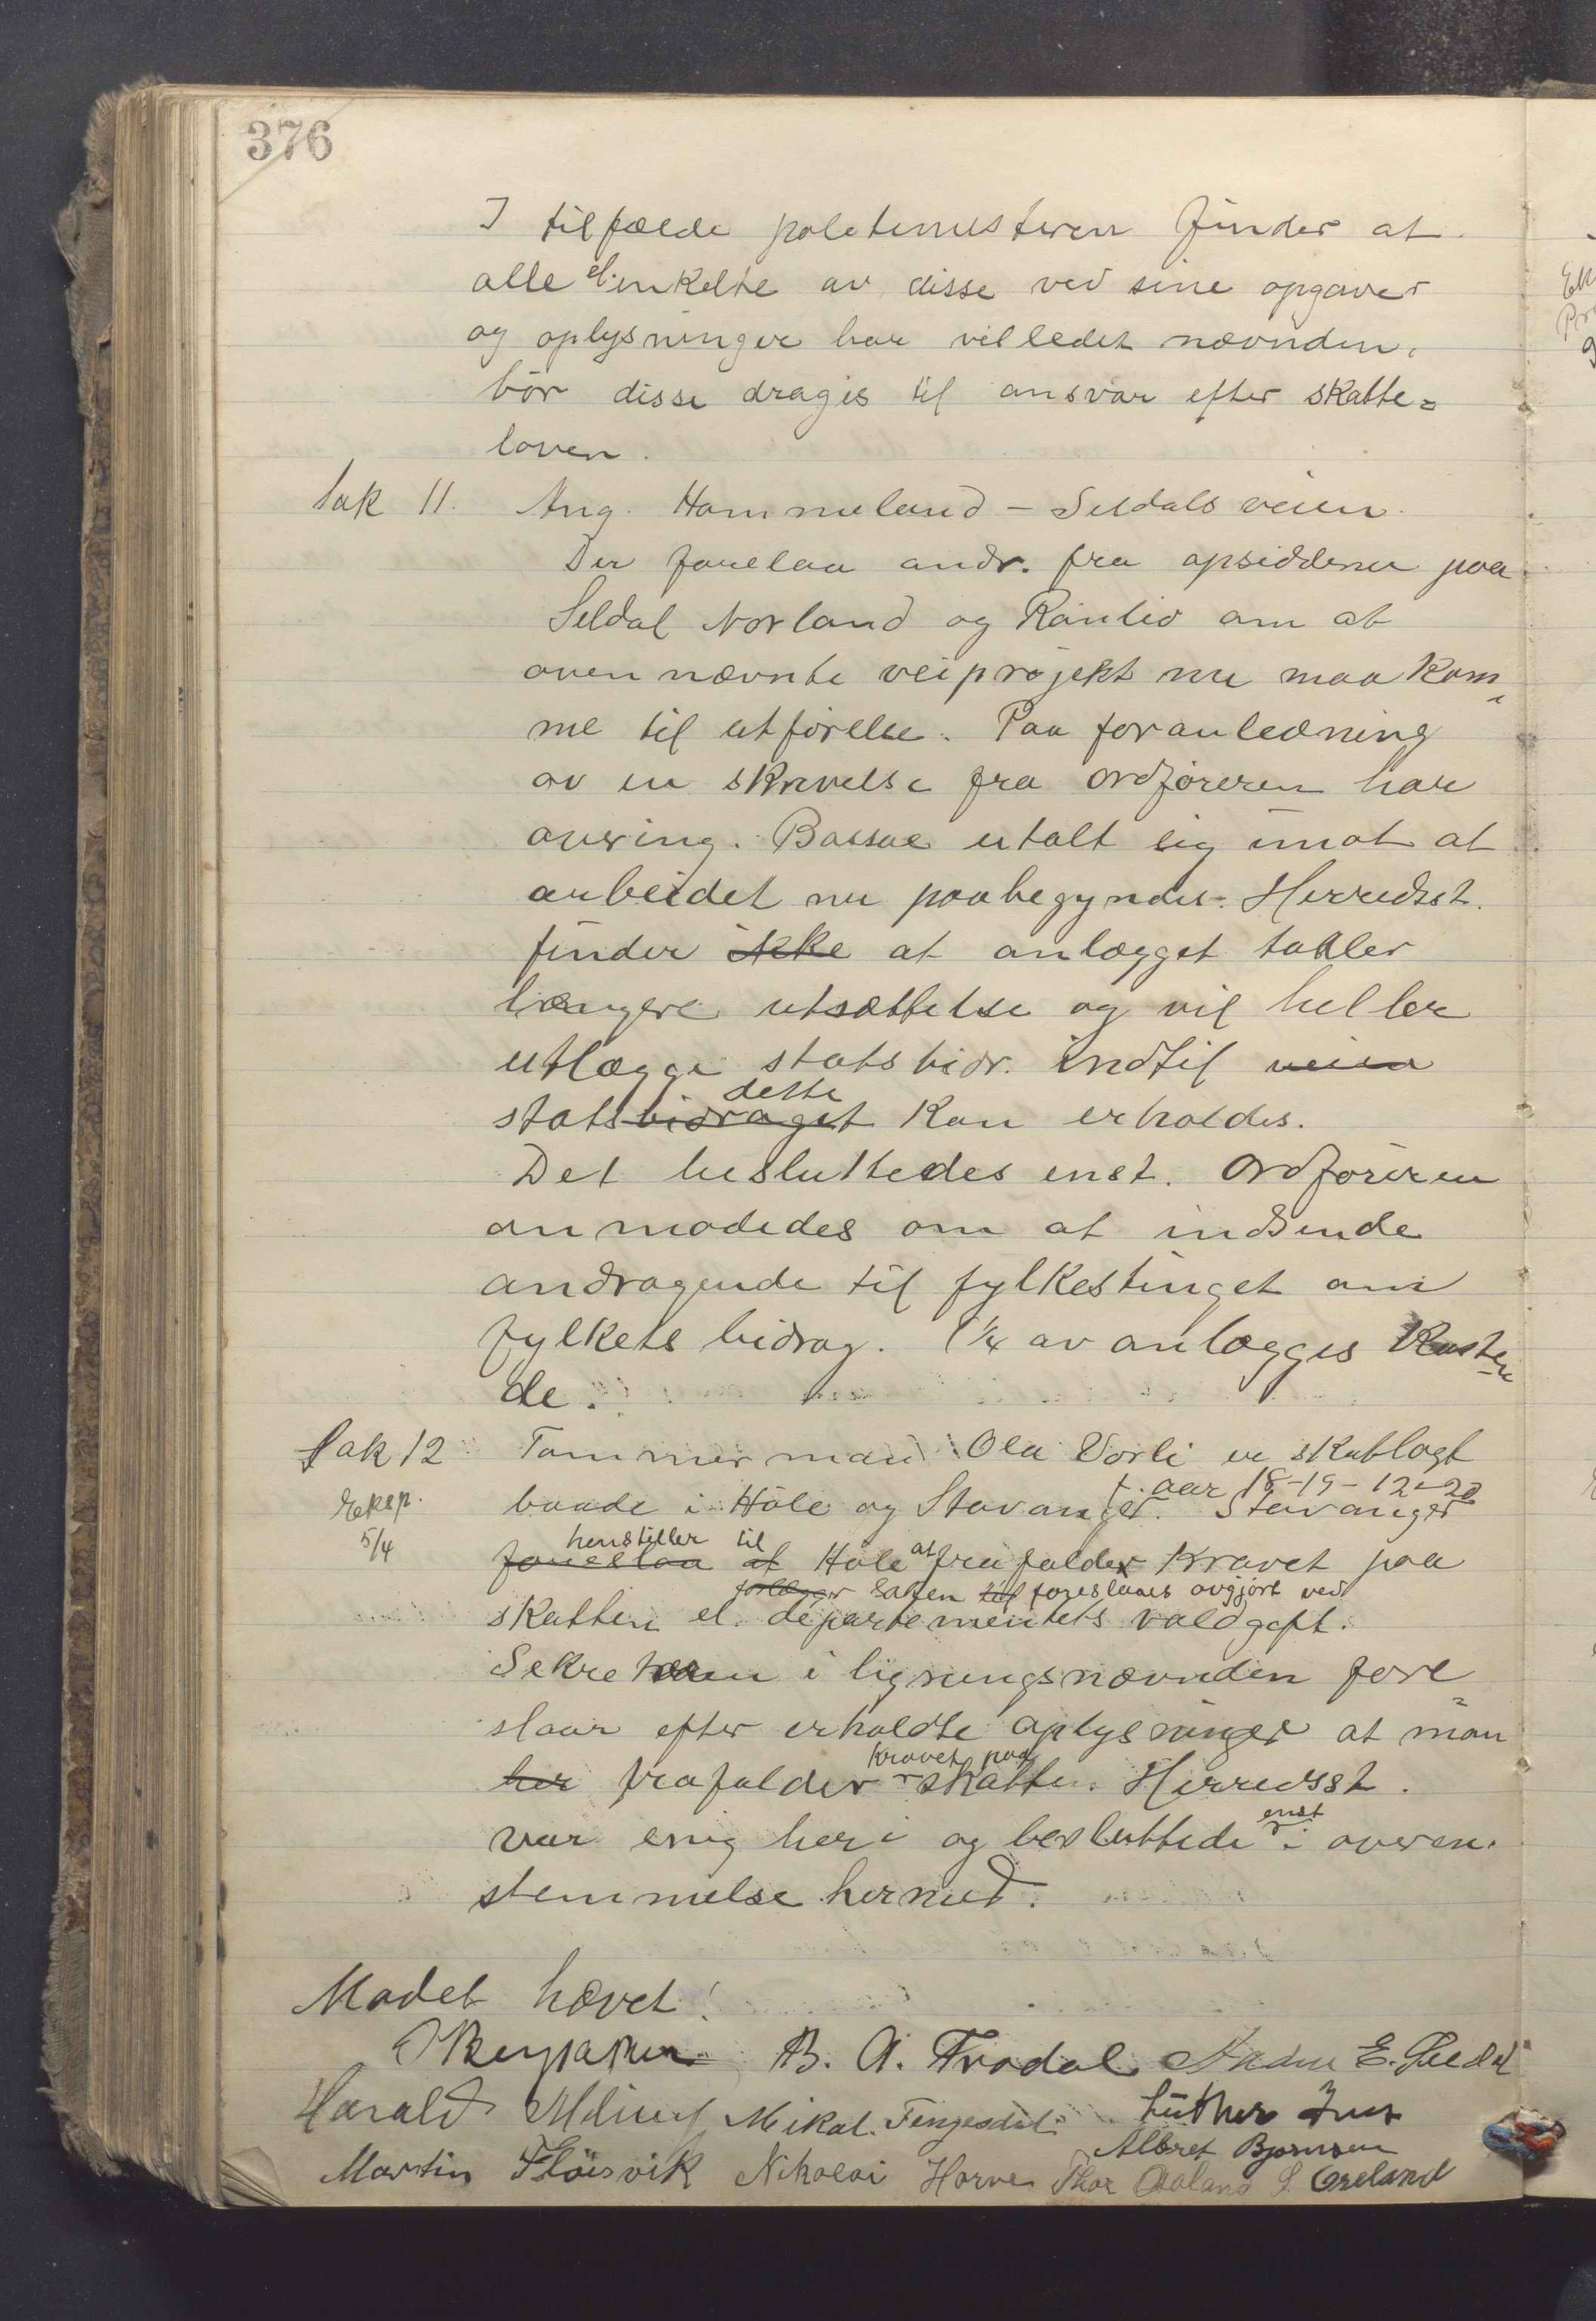 376
I tilfælde politimesteren finder at
alle el. enkelte av disse ved sine opgaver
og oplysninger har villedet nævnden,
bör disse drages til ansvar efter skatte=
loven.
Sak 11. Ang. Hommeland - Seldalsveien.
Der forelaa andr. fra opsidderne paa
Seldal Norland og Kanlid om at
ovennævnte veiprojekt nu maa kom-
me til utförelse. Paa foranledning
av en skrivelse fra ordföreren har
avd.ing. Bassøe utalt sig imot at
arbeidet nu paabegyndes. Herredsst.
finder ikke at anlægget taaler
længere utsættelse og vil heller
utlægge statsbidr. indtil veien
dette
statsbidraget kan erholdes.
Det besluttedes enst. Ordföreren
anmodedes om at indsende
andragende til fylkestinget om
fylkets bidrag. 1/4 av anlægges kosten
de.
Sak 12 Tömmermand Ola Vorli er skatlagt
f. aar 18-19-12-20
Eksp. baade i Höle og Stavanger. Stavanger
5/4
henstiller til at
foreslaa at Höle frafalder kravet paa
forlæger saken til foreslaaes avgjört ved
skatten el. departementets voldgift.
Sekretæren i ligningsnævnden fore=
slaar efter erholdte oplysninger at man
kravet paa
her frafalder skatten. Herredsst.
enst
var enig heri og besluttede i overen-
stemmelse hermed.
Mödet hævet!
B. A. Frödal E. Seldal
Harald Mikal Tengesdal Luther
Albret Bjørnsen
Martin Flöisvik Nikolai Horve Thor Aaland S. Oreland